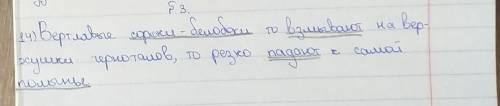 § 3.
14) Вертлявые сороки-белобоки то взмывают на вер-
хушки чернотала, то резко падают с самой